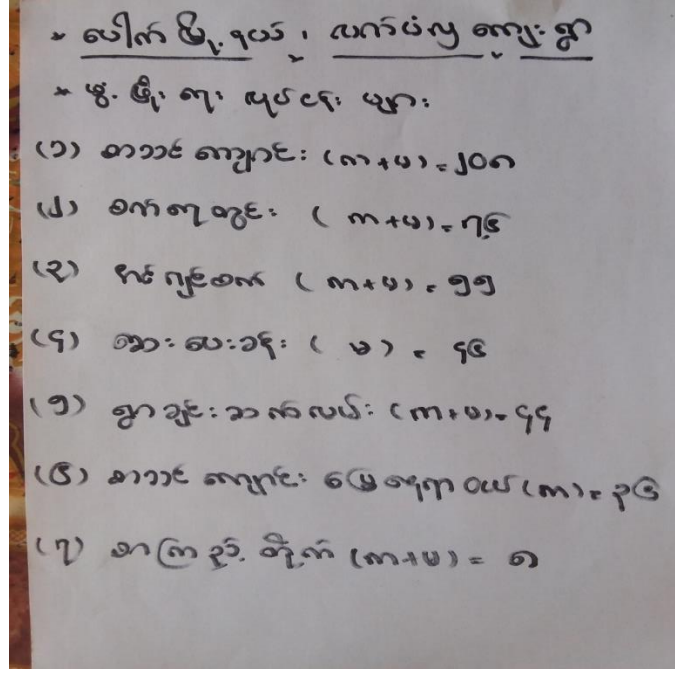 * ပေါက်မြို့နယ်၊ လက်ပံလှကျေးရွာ
* ဖွံ့ဖြိုးရေး လုပ်ငန်းများ
(၁) စာသင်ကျောင်း (က+မ) = ၂၀၈
(၂) စက်ရေတွင်း (က+မ) = ၇၆
(၃) အင်ဂျင်စက် (က+မ) = ၅၅
(၄) ဆေးပေးခန်း (မ) = ၄၆
(၅) ရွာချင်းဆက်လမ်း (က+မ) = ၄၄
(၆) စာသင်ကျောင်း မြေနေရာဝယ် (က) = ၃၆
(၇) စာကြည့်တိုက် (က+မ) = ၈